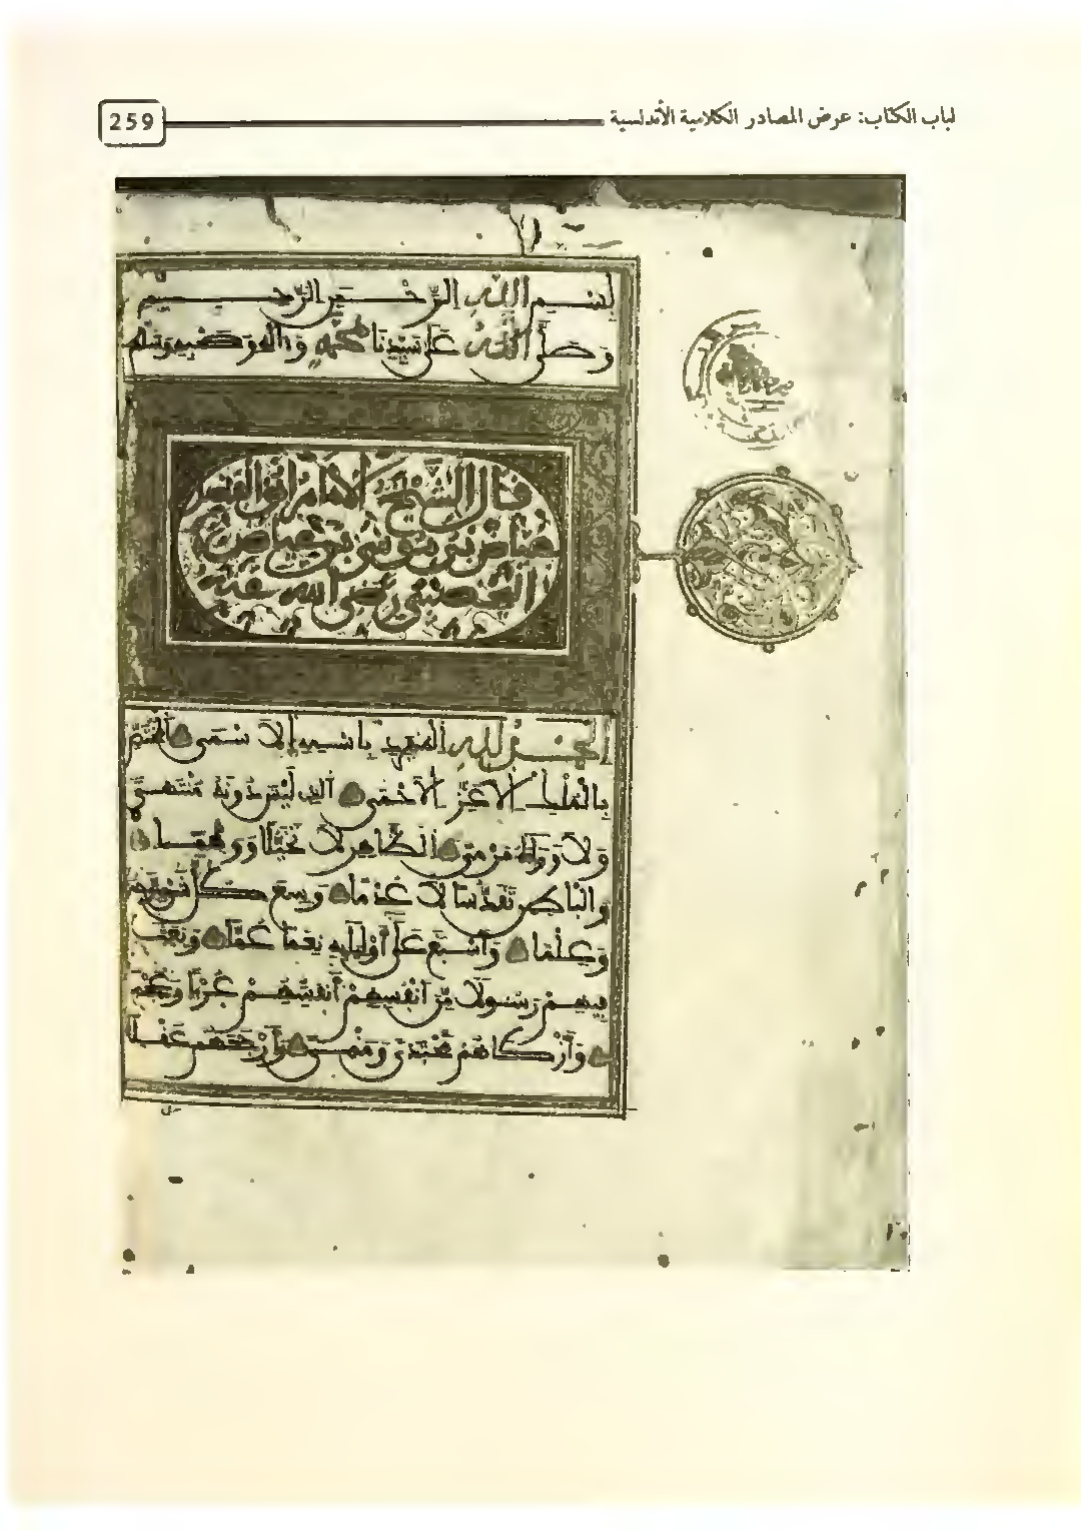 لباب الكتاب: عرض المصادر الكلامية الأندلسية
259
بِسْمِ اللهِ الرَّحْمَنِ الرَّحِيمِ
وَصَلَّى اللهُ عَلَى سَيِّدِنَا مُحَمَّدٍ وَءَالِهِ وَصَحْبِهِ وَسَلَّم
قال الشيخ الإمام أبو الفضل
عياض بن موسى بن عياض
اليحصبي رضي الله عنه
الحمد لله المنفرد باسمه الأسمى المختص
بالملك الأعز الأحمى الذي ليس دونه منتهى
ولا وراءه مرمى الظاهر لا تخيلا ووهما
والباطن تقدسا لا عدما وسع كل شيء رحمة
وعلما وأسبغ على أوليائه نعما عما وبعث
فيهم رسولا من أنفسهم أنفسهم عربا وعجما
وأزكاهم محتدا ومنمى وأرجحهم عقلا